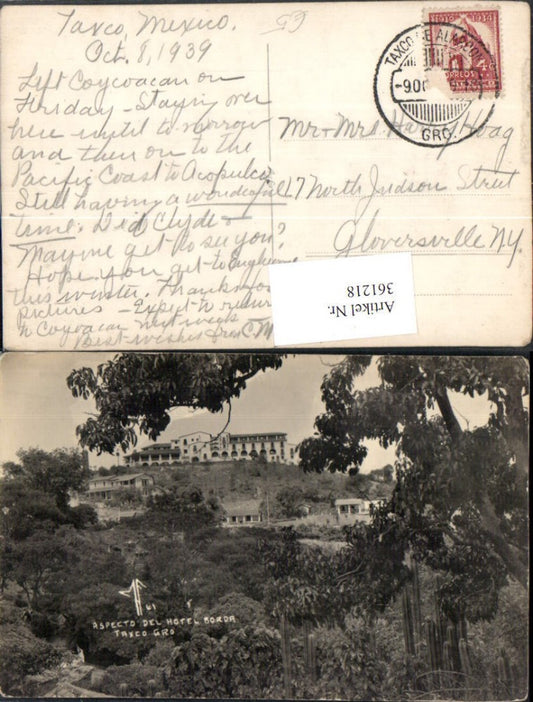 Taxco, Mexico.
Oct. 8, 1939
Left Coycoacan on
Friday - Staying over
here until to morrow
and then on to the
Pacific Coast to Acapulco.
Still having a wonderful
time. Did Clyde &
Mayme get to see you?
Hope you get to
this winter, Thank you
pictures - Expect to return
to Coyoacan next week
Best wishes
65
Mr + Mrs. Harry Hoag
17 North Judson Street
Gloversville N.Y.
TAXCO DE ALARCON
-9 OC
GRO.
1939 1939
CORREOS
Artikel Nr.
361218
61
ASPECTO DEL HOTEL BORDA
TAXCO GRO